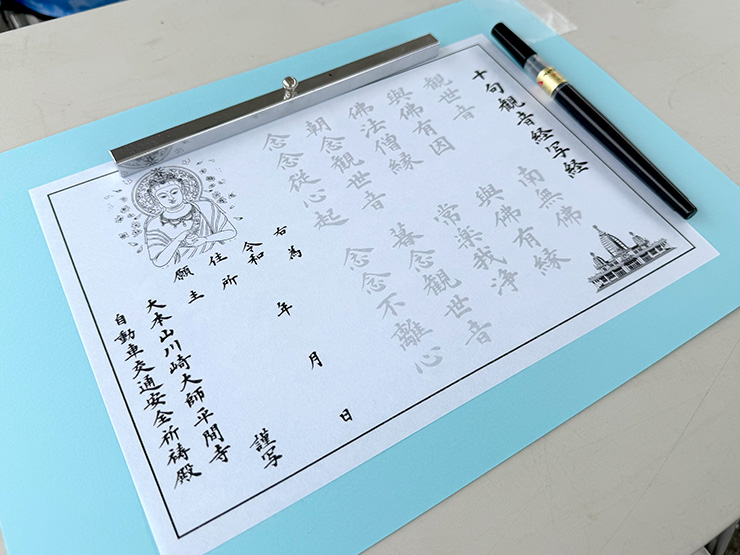 十句観音経写経
観世音 南無佛
與佛有因 與佛有縁
佛法僧縁 常楽我浄
朝念観世音 暮念観世音
念念從心起 念念不離心
右為
令和 年 月 日
住所
願主 謹写
大本山川崎大師平間寺
自動車交通安全祈祷殿